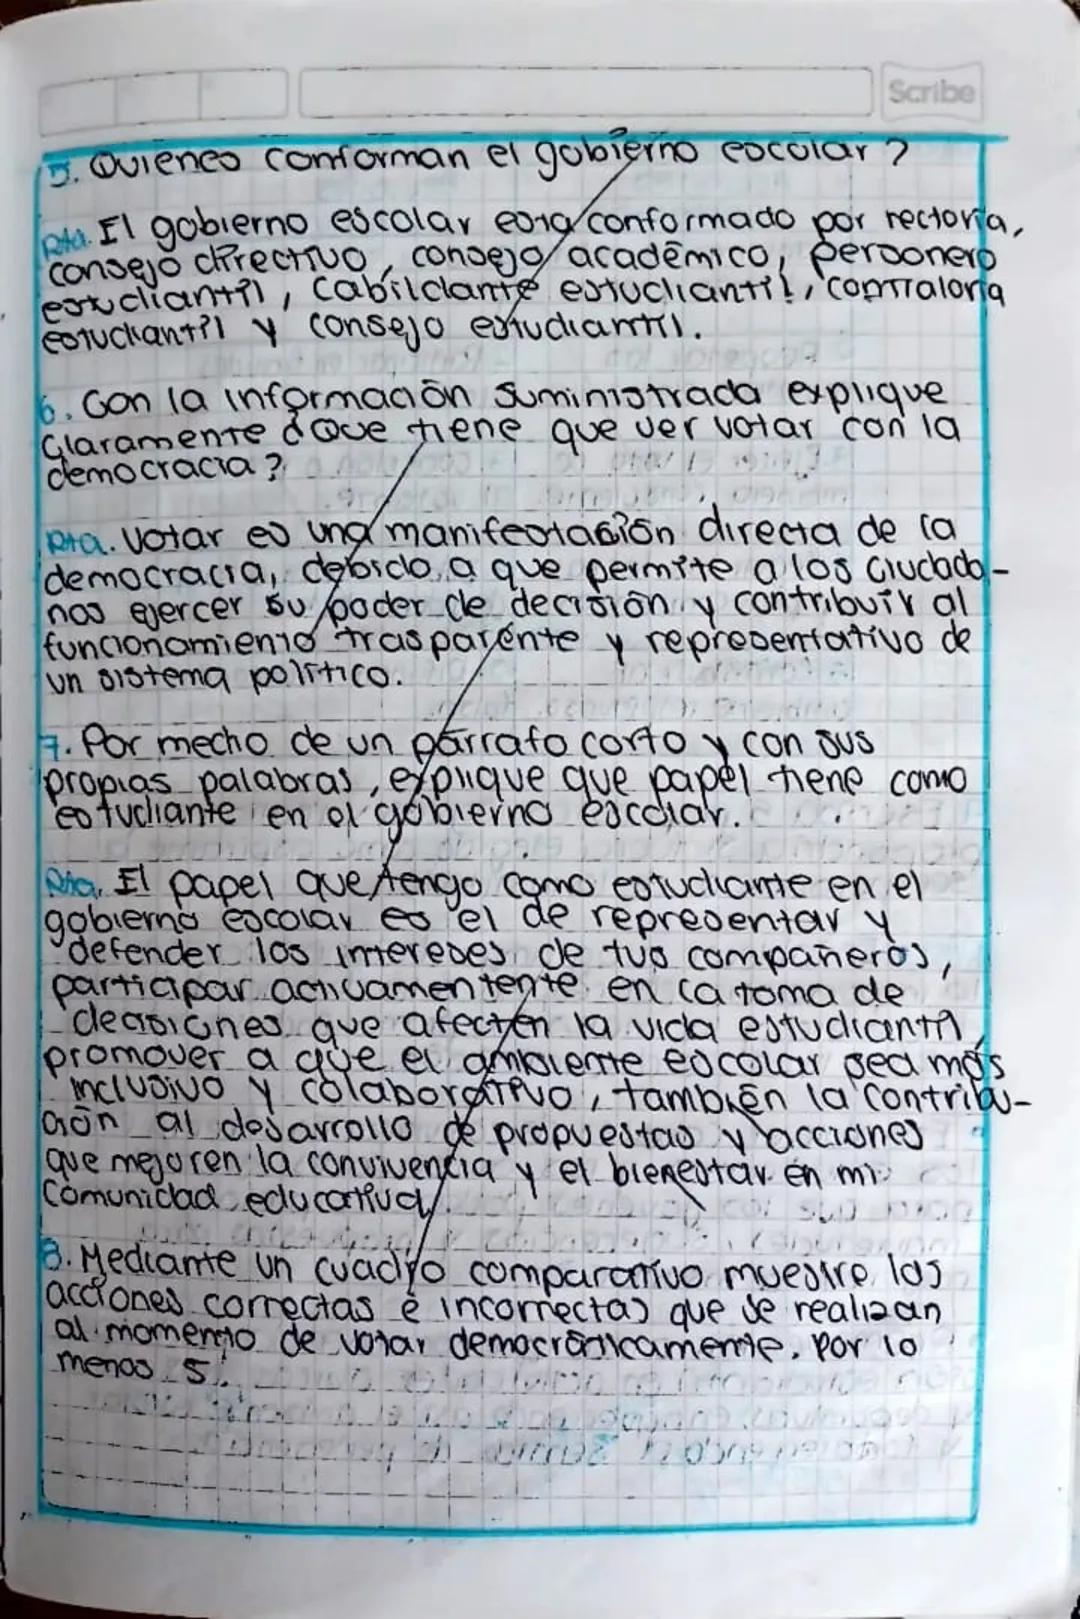 Scribe
5. Quienes conforman el gobierno escolar?
Rta. El gobierno escolar esta conformado por rectoria,
consejo directivo, consejo académico, personero
estudiantil, Cabildante estudiantil, contraloria
estudiantil y consejo estudiantil.
6. Con la información suministrada explique
Claramente ¿Que tiene que ver votar con la
democracia?
Rta. Votar es una manifestación directa de la
democracia, debido a que permite a los Ciudada-
nos ejercer su poder de decisión y contribuir al
funcionamiento trasparente y representativo de
un sistema político.
7. Por medio de un párrafo corto y con sus
propias palabras, explique que papel tiene como
estudiante en el gobierno escolar.
Rta. El papel que tengo como estudiante en el
gobierno escolar es el de representar y
defender los intereses de tus compañeros,
particapar activamentente en la toma de
decisiones que afecten la vida estudiantil,
promover a que el ambiente escolar sea más
inclusivo y colaborativo, también la contribu-
ción al desarrollo de propuestas y acciones
que mejoren la convivencia y el bienestar en mi
Comunidad educativa.
8. Mediante un cuadro comparativo muestre las
acciones correctas e incorrectas que se realizan
al momento de votar democráticamente. Por lo
menos 5.